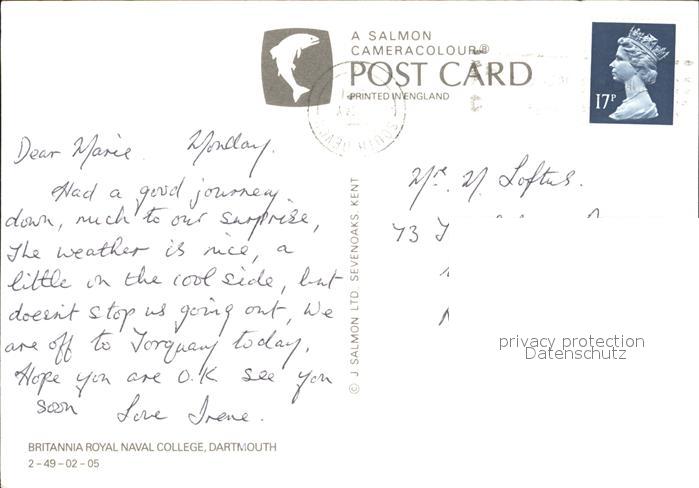 A SALMON
CAMERACOLOUR®
POST CARD
PRINTED IN ENGLAND
17P
SOUTH DEVON
Dear Marie. Monday.
Had a good journey
down, much to our surprise,
The weather is nice, a
little on the cool side, but
doesn't stop us going out, We
are off to Torquay today,
Hope you are O.K see you
soon Love Irene.
Mrs. M. Loftus.
73
© J SALMON LTD. SEVENOAKS. KENT
privacy protection
Datenschutz
BRITANNIA ROYAL NAVAL COLLEGE, DARTMOUTH
2-49-02-05